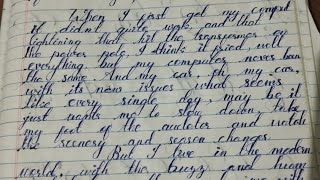 When I first got my comput
it didnt quite work, and that
lightening that hit the transformer on
the power pole, I think it fried, well
everything, but my computer never been
the same. And my car, oh my car,
with its new issues what seems
like every single day, may be it
just wants me to slow down take
my foot of the and watch
the scenery and season changes.
But I live in the modern
world, with the buzz and hum
with